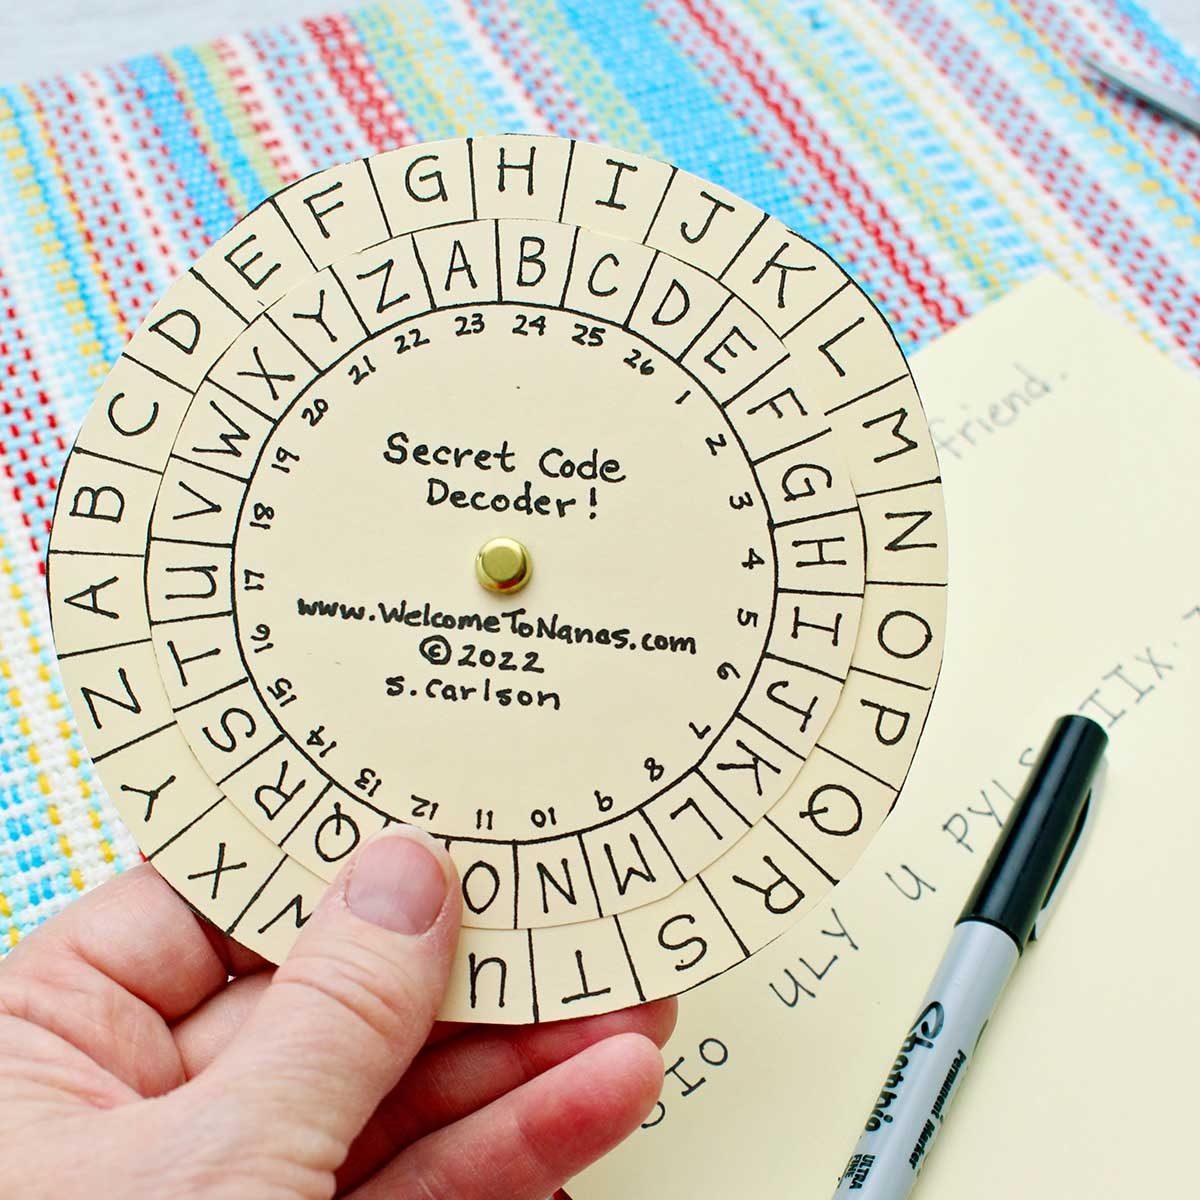 A B C D E F G H I J K L M N O P Q R S T U X Y Z
A B C D E F G H I J K L M N O Q R S T U V W X Y Z
1 2 3 4 5 6 7 8 9 10 11 12 13 14 15 16 17 18 19 20 21 22 23 24 25 26
Secret Code
Decoder!
www.WelcomeToNanas.com
© 2022
s. carlson
friend.
IO ULY U PYLS IIX.
Sharpie
Permanent Marker
ULTRA
FINE